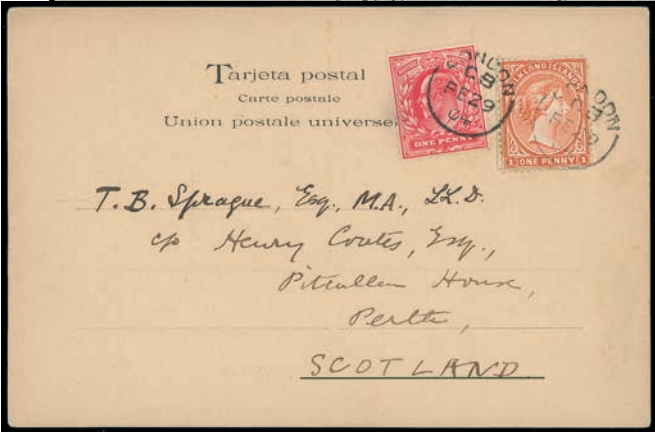 Tarjeta postal
Carte postale
Union postale universe
ONE PENNY
LONDON
C8
FE 29
04
KLAND ISLAND
1 ONE PENNY 1
DON
FE
T. B. Sprague, Esq., M.A., LL.D.
c/o Henry Coates, Esq.,
Pitcullen House,
Perth,
SCOTLAND.